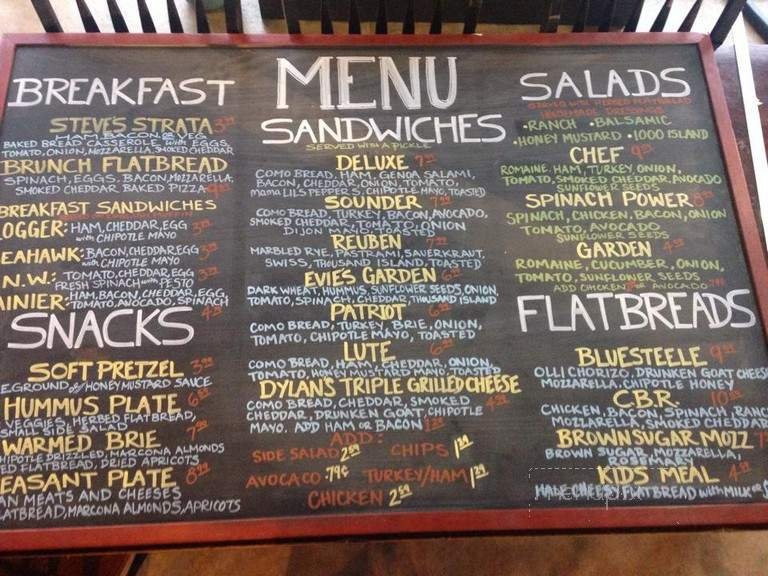 BREAKFAST
STEVE'S STRATA
HAM, BACON, OR VEG
BAKED BREAD CASSEROLE with EGGS,
TOMATO, ONION, MOZZARELLA, SMOKED CHEDDAR
BRUNCH FLATBREAD
SPINACH, EGGS, BACON, MOZZARELLA,
SMOKED CHEDDAR BAKED PIZZA
BREAKFAST SANDWICHES
OGGER: HAM, CHEDDAR, EGG
with CHIPOTLE MAYO
EAHAWK: BACON, CHEDDAR, EGG
with CHIPOTLE MAYO
N.W.: TOMATO, CHEDDAR, EGG
FRESH SPINACH with PESTO
AINIER: HAM, BACON, CHEDDAR, EGG,
TOMATO, AVOCADO, SPINACH
SNACKS
SOFT PRETZEL
EGROUND or HONEY MUSTARD SAUCE
HUMMUS PLATE
VEGGIES, HERBED FLATBREAD,
SMALL SIDE SALAD
WARMED BRIE
HIPOTLE DRIZZLED, MARCONA ALMONDS
ED FLATBREAD, DRIED APRICOTS
EASANT PLATE
AN MEATS AND CHEESES
LATBREAD, MARCONA ALMONDS, APRICOTS
MENU
SANDWICHES
SERVED WITH A PICKLE
DELUXE
COMO BREAD, HAM, GENOA SALAMI,
BACON, CHEDDAR, ONION, TOMATO,
mama LILS PEPPERS, CHIPOTLE MAYO, TOASTED
SOUNDER
COMO BREAD, TURKEY, BACON, AVOCADO,
SMOKED CHEDDAR, TOMATO, ONION
DIJON MAYO, TOASTED
REUBEN
MARBLED RYE, PASTRAMI, SAUERKRAUT,
SWISS, THOUSAND ISLAND, TOASTED
EVIE'S GARDEN
DARK WHEAT, HUMUS, SUNFLOWER SEEDS, ONION,
TOMATO, SPINACH, CHEDDAR, THOUSAND ISLAND
PATRIOT
COMO BREAD, TURKEY, BRIE, ONION,
TOMATO, CHIPOTLE MAYO, TOASTED
LUTE
COMO BREAD, HAM, CHEDDAR, ONION,
TOMATO, HONEY MUSTARD MAYO, TOASTED
DYLAN'S TRIPLE GRILLED CHEESE
COMO BREAD, CHEDDAR, SMOKED
CHEDDAR, DRUNKEN GOAT, CHIPOTLE
MAYO. ADD HAM OR BACON
ADD:
SIDE SALAD 2.59 CHIPS 1.29
AVOCACO .79¢ TURKEY/HAM 1.29
CHICKEN 2.59
SALADS
SERVED WITH HERBED FLATBREAD
HOMEMADE DRESSINGS
•RANCH •BALSAMIC
•HONEY MUSTARD •1000 ISLAND
CHEF
ROMAINE, HAM, TURKEY, ONION,
TOMATO, SMOKED CHEDDAR, AVOCADO
SUNFLOWER SEEDS
SPINACH POWER
SPINACH, CHICKEN, BACON, ONION
TOMATO, AVOCADO
SUNFLOWER SEEDS
GARDEN
ROMAINE, CUCUMBER, ONION,
TOMATO, SUNFLOWER SEEDS
ADD CHICKEN or AVOCADO
FLATBREADS
BLUESTEELE
OLLI CHORIZO, DRUNKEN GOAT CHEESE
MOZZARELLA, CHIPOTLE HONEY
C.B.R.
CHICKEN, BACON, SPINACH, RANC
MOZZARELLA, SMOKED CHEDDAR
BROWN SUGAR MOZZ
BROWN SUGAR, MOZZARELLA,
ROSEMARY
KIDS MEAL
HALF CHEESY FLATBREAD with MILK or